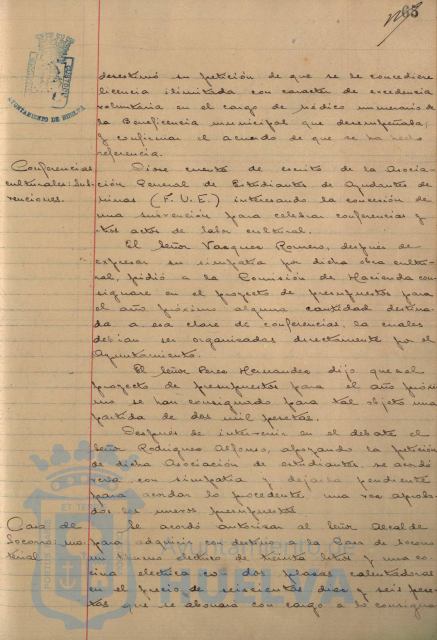 65
AYUNTAMIENTO DE HUELVA
desestimó su petición de que se le concediese
licencia ilimitada con caracter de excedencia
voluntaria en el cargo de médico numerario de
la Beneficencia municipal que desempeñaba,
y confirmar el acuerdo de que se ha hecho
referencia.
Conferencias
culturales: Sub-
venciones.
Diose cuenta de escrito de la Asocia-
ción General de Estudiantes de Ayudantes de
minas (F.U.E.) interesando la concesión de
una subvención para celebrar conferencias y
otros actos de labor cultural.
El Señor Vasquez Romero, después de
expresar su simpatía por dicha obra cultu-
ral, pidió a la Comisión de Hacienda con-
signase en el proyecto de presupuestos para
el año próximo alguna cantidad destina-
da a esa clase de conferencias, la cuales
debían ser organizadas directamente por el
Ayuntamiento.
El Señor Perez Hernandez dijo que en el
proyecto de presupuestos para el año próxi-
mo se han consignado para tal objeto una
partida de dos mil pesetas.
Después de intervenir en el debate el
Señor Rodriguez Alfonso, apoyando la petición
de dicha Asociación de estudiantes, se acordó
verla con simpatía y dejarla pendiente
para acordar lo procedente una vez aproba-
dos los nuevos presupuestos.
Casa de
Socorro: ma-
terial.
Se acordó autorizar al Señor Alcalde
para adquirir con destino a la Casa de Socorro
un termo electrico de treinta litros y una co-
cina electrica con dos placas calentadoras
en el precio de seiscientas diez y seis pese-
tas que se abonará con cargo a lo consigna-
Ayuntamiento de
HUELVA